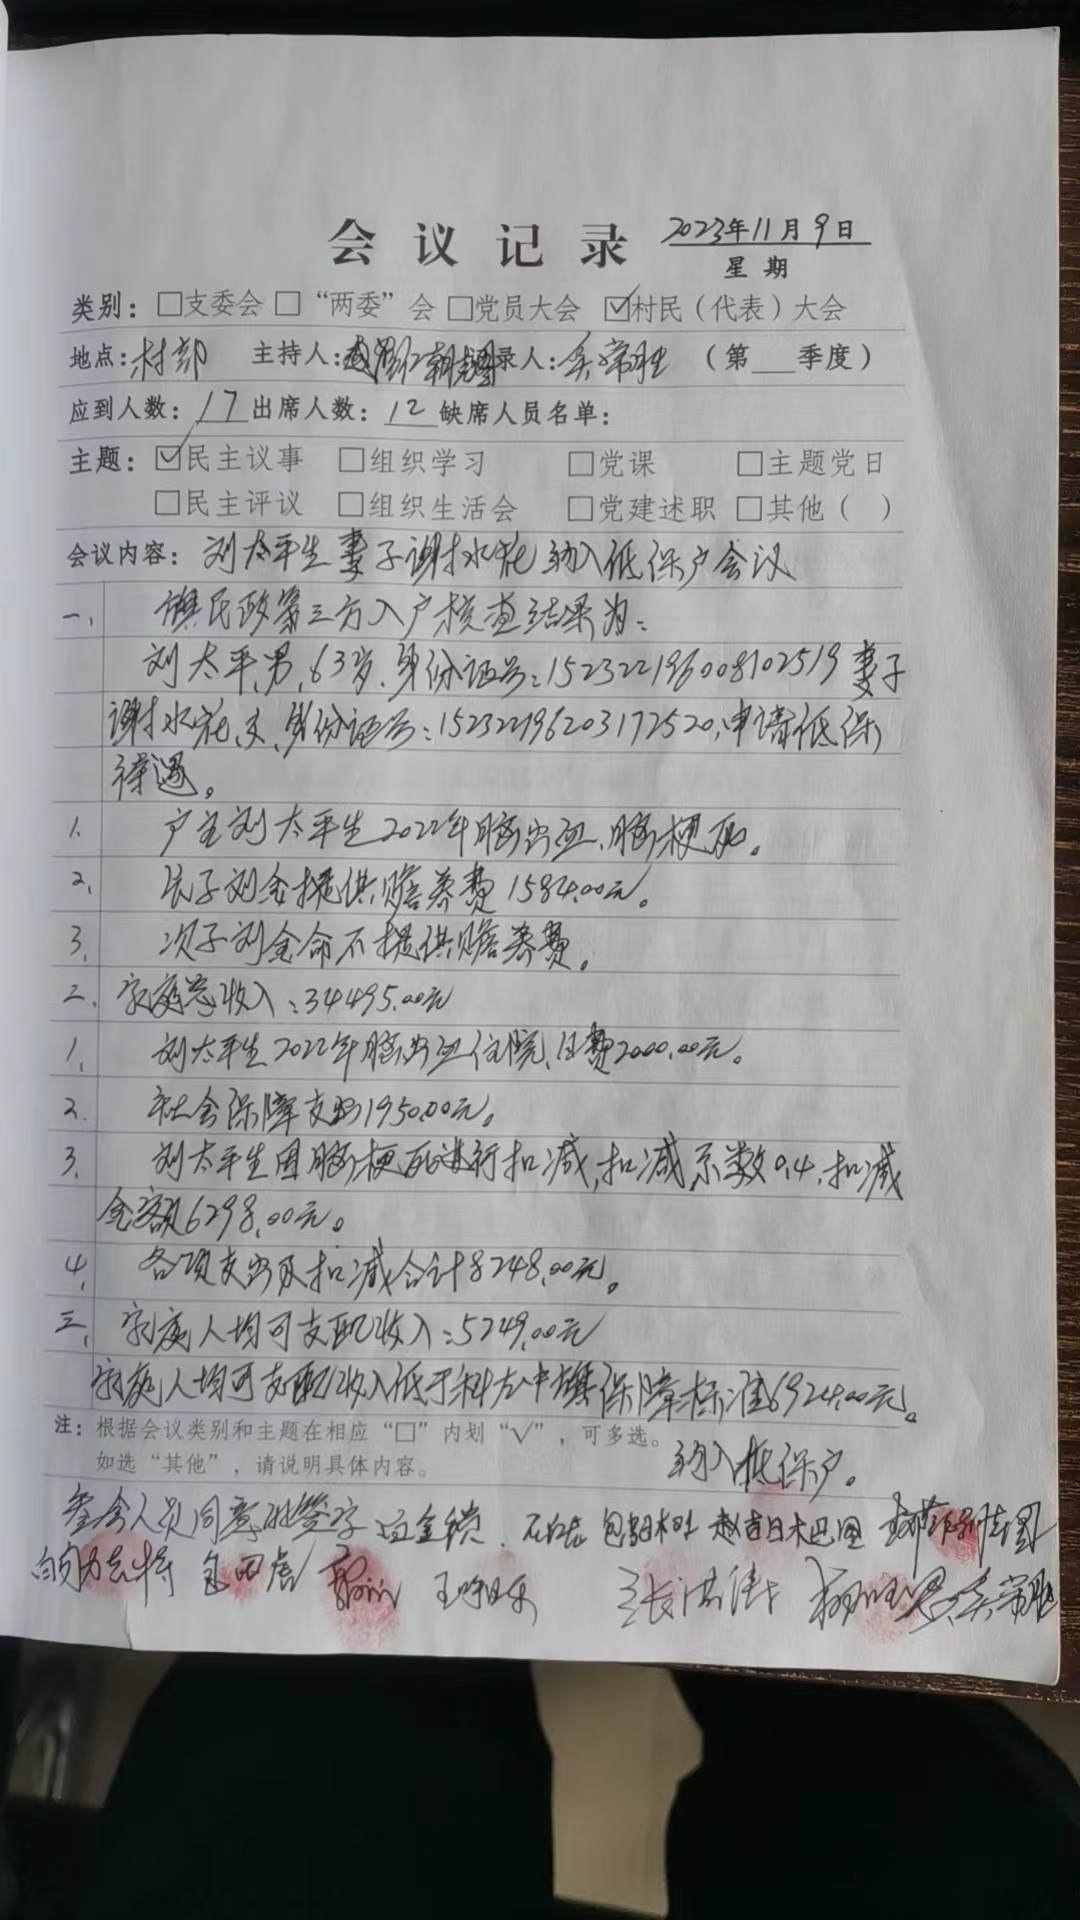 会议记录 2023年11月9日
星期
类别：□支委会 □“两委”会 □党员大会 ☑村民（代表）大会
地点：村部 主持人： 录人：吴常胜 （第 季度）
应到人数：17 出席人数：12 缺席人员名单：
主题：☑民主议事 □组织学习 □党课 □主题党日
□民主评议 □组织生活会 □党建述职 □其他（ ）
会议内容：刘太平生妻子谢水花纳入低保户会议
一、 旗民政第三方入户核查结果为：
刘太平，男，63岁，身份证号：152322196008102519妻子
谢水花、女、身份证号：152322196203172520，申请低保
待遇。
1. 户主刘太平生2022年脑出血、脑梗死。
2. 长子刘金提供赡养费1584.00元。
3. 次子刘金命不提供赡养费。
二、家庭总收入：34495.00元
1. 刘太平生2022年脑出血住院，自费2000.00元。
2. 社会保障支出1950.00元。
3. 刘太平生因脑梗死进行扣减，扣减系数0.4，扣减
金额6298.00元。
4. 各项支出及扣减合计8248.00元。
三、 家庭人均可支配收入：5249.00元
家庭人均可支配收入低于科左中旗保障标准6924.00元。
注：根据会议类别和主题在相应“□”内划“√”，可多选。
如选“其他”，请说明具体内容。
纳入低保户。
参会人员同意并签字 赵吉日木巴图
张洪伟 吴常胜